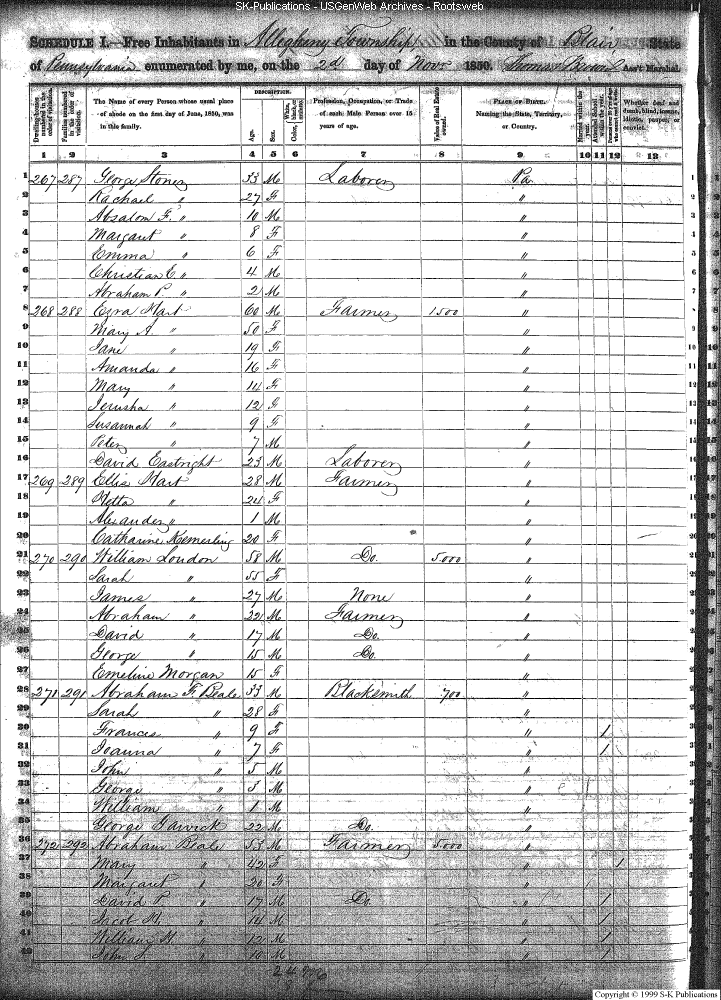 SK-Publications - USGenWeb Archives - Rootsweb
SCHEDULE I.—Free Inhabitants in Allegheny Township in the County of Blair State
of Pennsylvania enumerated by me, on the 2d day of Novr 1850. Thomas Ass't Marshal.
DESCRIPTION.
Dwelling-houses numbered in the order of visitation. Families numbered in the order of visitation. The Name of every Person whose usual place of abode on the first day of June, 1850, was in this family. Age. Sex. White, black, or mulatto. Color, Profession, Occupation, or Trade of each Male Person over 15 years of age. Value of Real Estate owned. PLACE OF BIRTH. Naming the State, Territory, or Country. Married within the year. Attended School within the year. Whether deaf and dumb, blind, insane, idiotic, pauper, or convict.
1 2 3 4 5 6 7 8 9 10 11 12 13
1 267 287 George Stoner 33 M Laborer Pa 1
2 Rachael " 27 F " 2
3 Absalom F. " 10 M " 3
4 Margaret " 8 F " 4
5 Emma " 6 F " 5
6 Christian C. " 4 M " 6
7 Abraham P. " 2 M " 7
8 268 288 Ezra Hart 60 M Farmer 1500 " 8
9 Mary A. " 50 F " 9
10 Jane " 19 F " 10
11 Amanda " 16 F " 11
12 Mary " 14 F " 12
13 Jerusha " 12 F " 13
14 Susannah " 9 F " 14
15 Peter " 7 M " 15
16 David Eastright 23 M Laborer " 16
17 269 289 Ellis Hart 28 M Farmer " 17
18 Hetta " 24 F " 18
19 Alexander " 1 M " 19
20 Catharine Kemerling 20 F " 20
21 270 290 William Loudon 58 M Do. 5000 " 21
22 Sarah " 55 F "
23 James " 27 M None "
24 Abraham " 22 M Farmer "
25 David " 17 M Do. "
26 George " 15 M Do. "
27 Emeline Morgan 15 F "
28 271 291 Abraham F. Beale 33 M Blacksmith 700 "
29 Sarah " 28 F "
30 Frances " 9 F " 1
31 Joanna " 7 F " 1
32 John " 5 M "
33 George " 3 M "
34 William " 1 M "
35 George Garwick 22 M Do. "
36 272 292 Abraham Beale 53 M Farmer 5000 "
37 Mary " 42 F " 1
38 Margaret " 20 F "
39 David P. " 17 M Do. " 1
40 Jacob M. " 14 M " 1
41 William H. " 12 M " 1
42 John S. " 10 M " 1
Copyright © 1999 S-K Publications